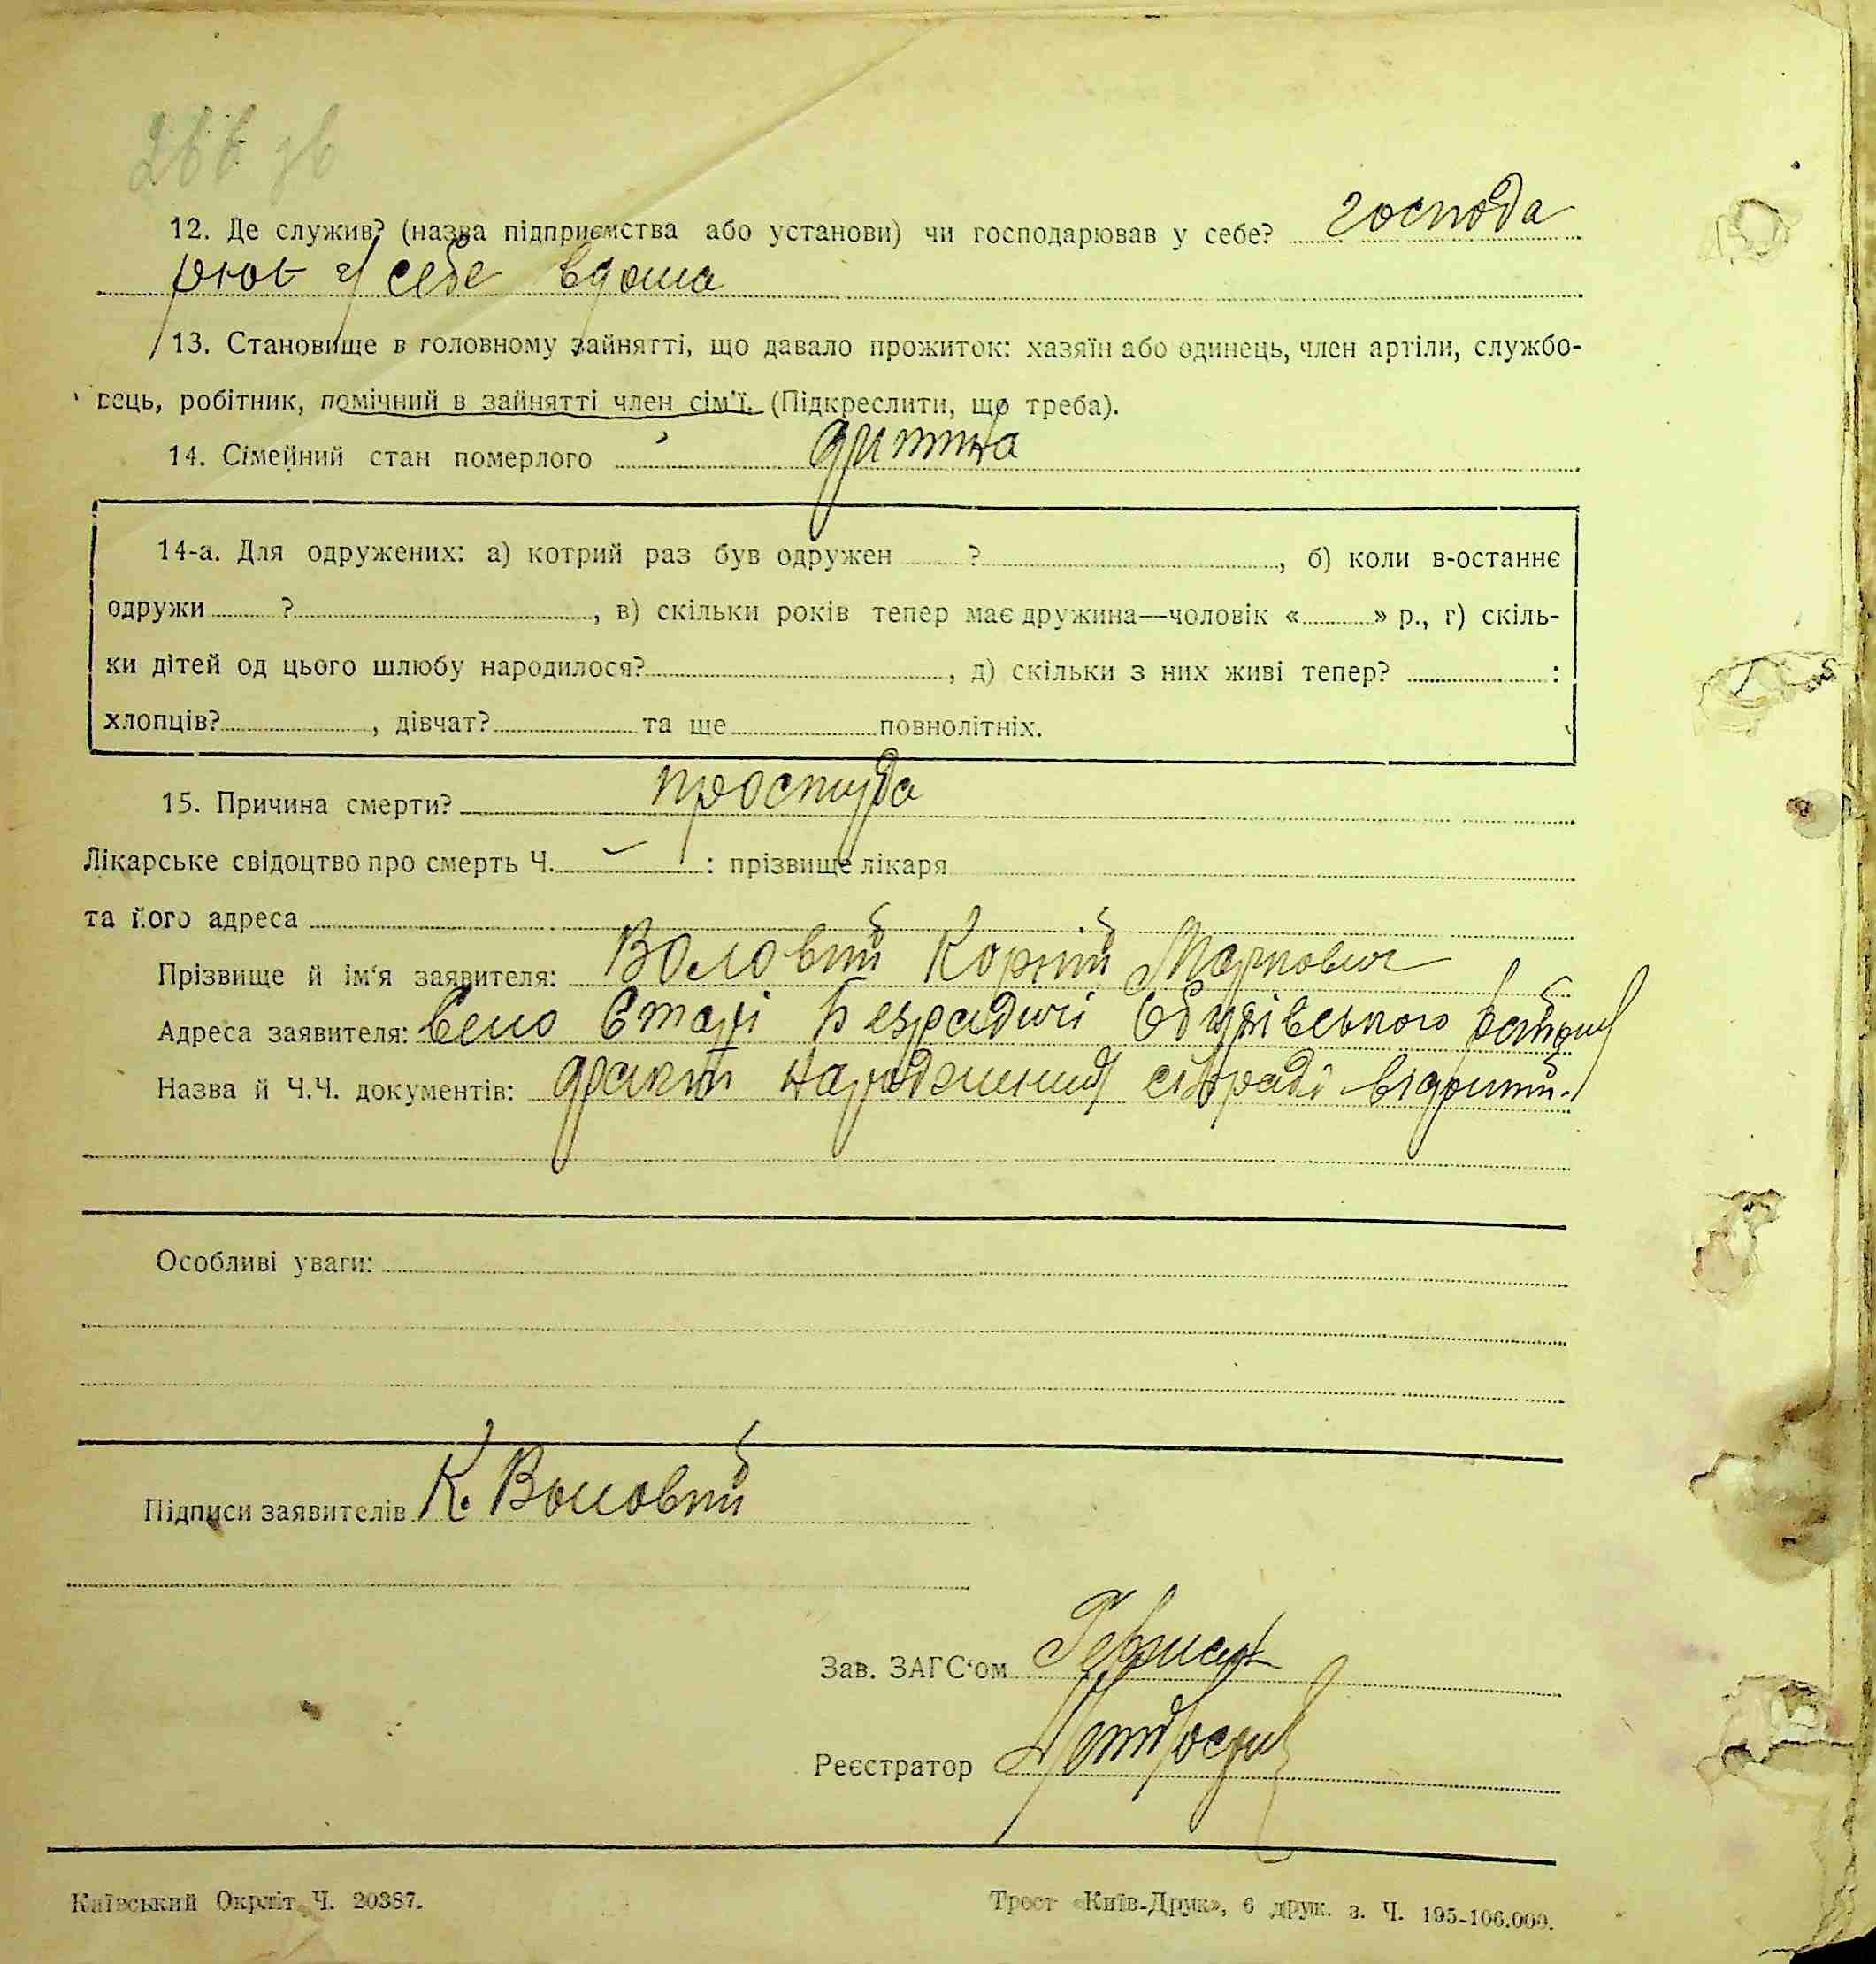 266 зв
12. Де служив? (назва підприємства або установи) чи господарював у себе? господа
рюв у себе вдома
13. Становище в головному зайнятті, що давало прожиток: хазяїн або одинець, член артіли, службо-
вець, робітник, помічний в зайнятті член сім'ї. (Підкреслити, що треба).
14. Сімейний стан померлого дитина
14-а. Для одружених: а) котрий раз був одружен ?, б) коли в-останнє
одружи ?, в) скільки років тепер має дружина—чоловік « » р., г) скіль-
ки дітей од цього шлюбу народилося?, д) скільки з них живі тепер? :
хлопців?, дівчат? та ще повнолітніх.
15. Причина смерти? простуда
Лікарське свідоцтво про смерть Ч. — : прізвище лікаря
та його адреса
Прізвище й ім'я заявителя: Воловий Корній Маркович
Адреса заявителя: Село Старі Безрадичі Обухівського району
Назва й Ч.Ч. документів:
Особливі уваги:
Підписи заявителів К. Воловий
Зав. ЗАГС'ом
Реєстратор
Київський Окрліт Ч. 20387.
Трест «Київ-Друк», 6 друк. з. Ч. 195-106.000.